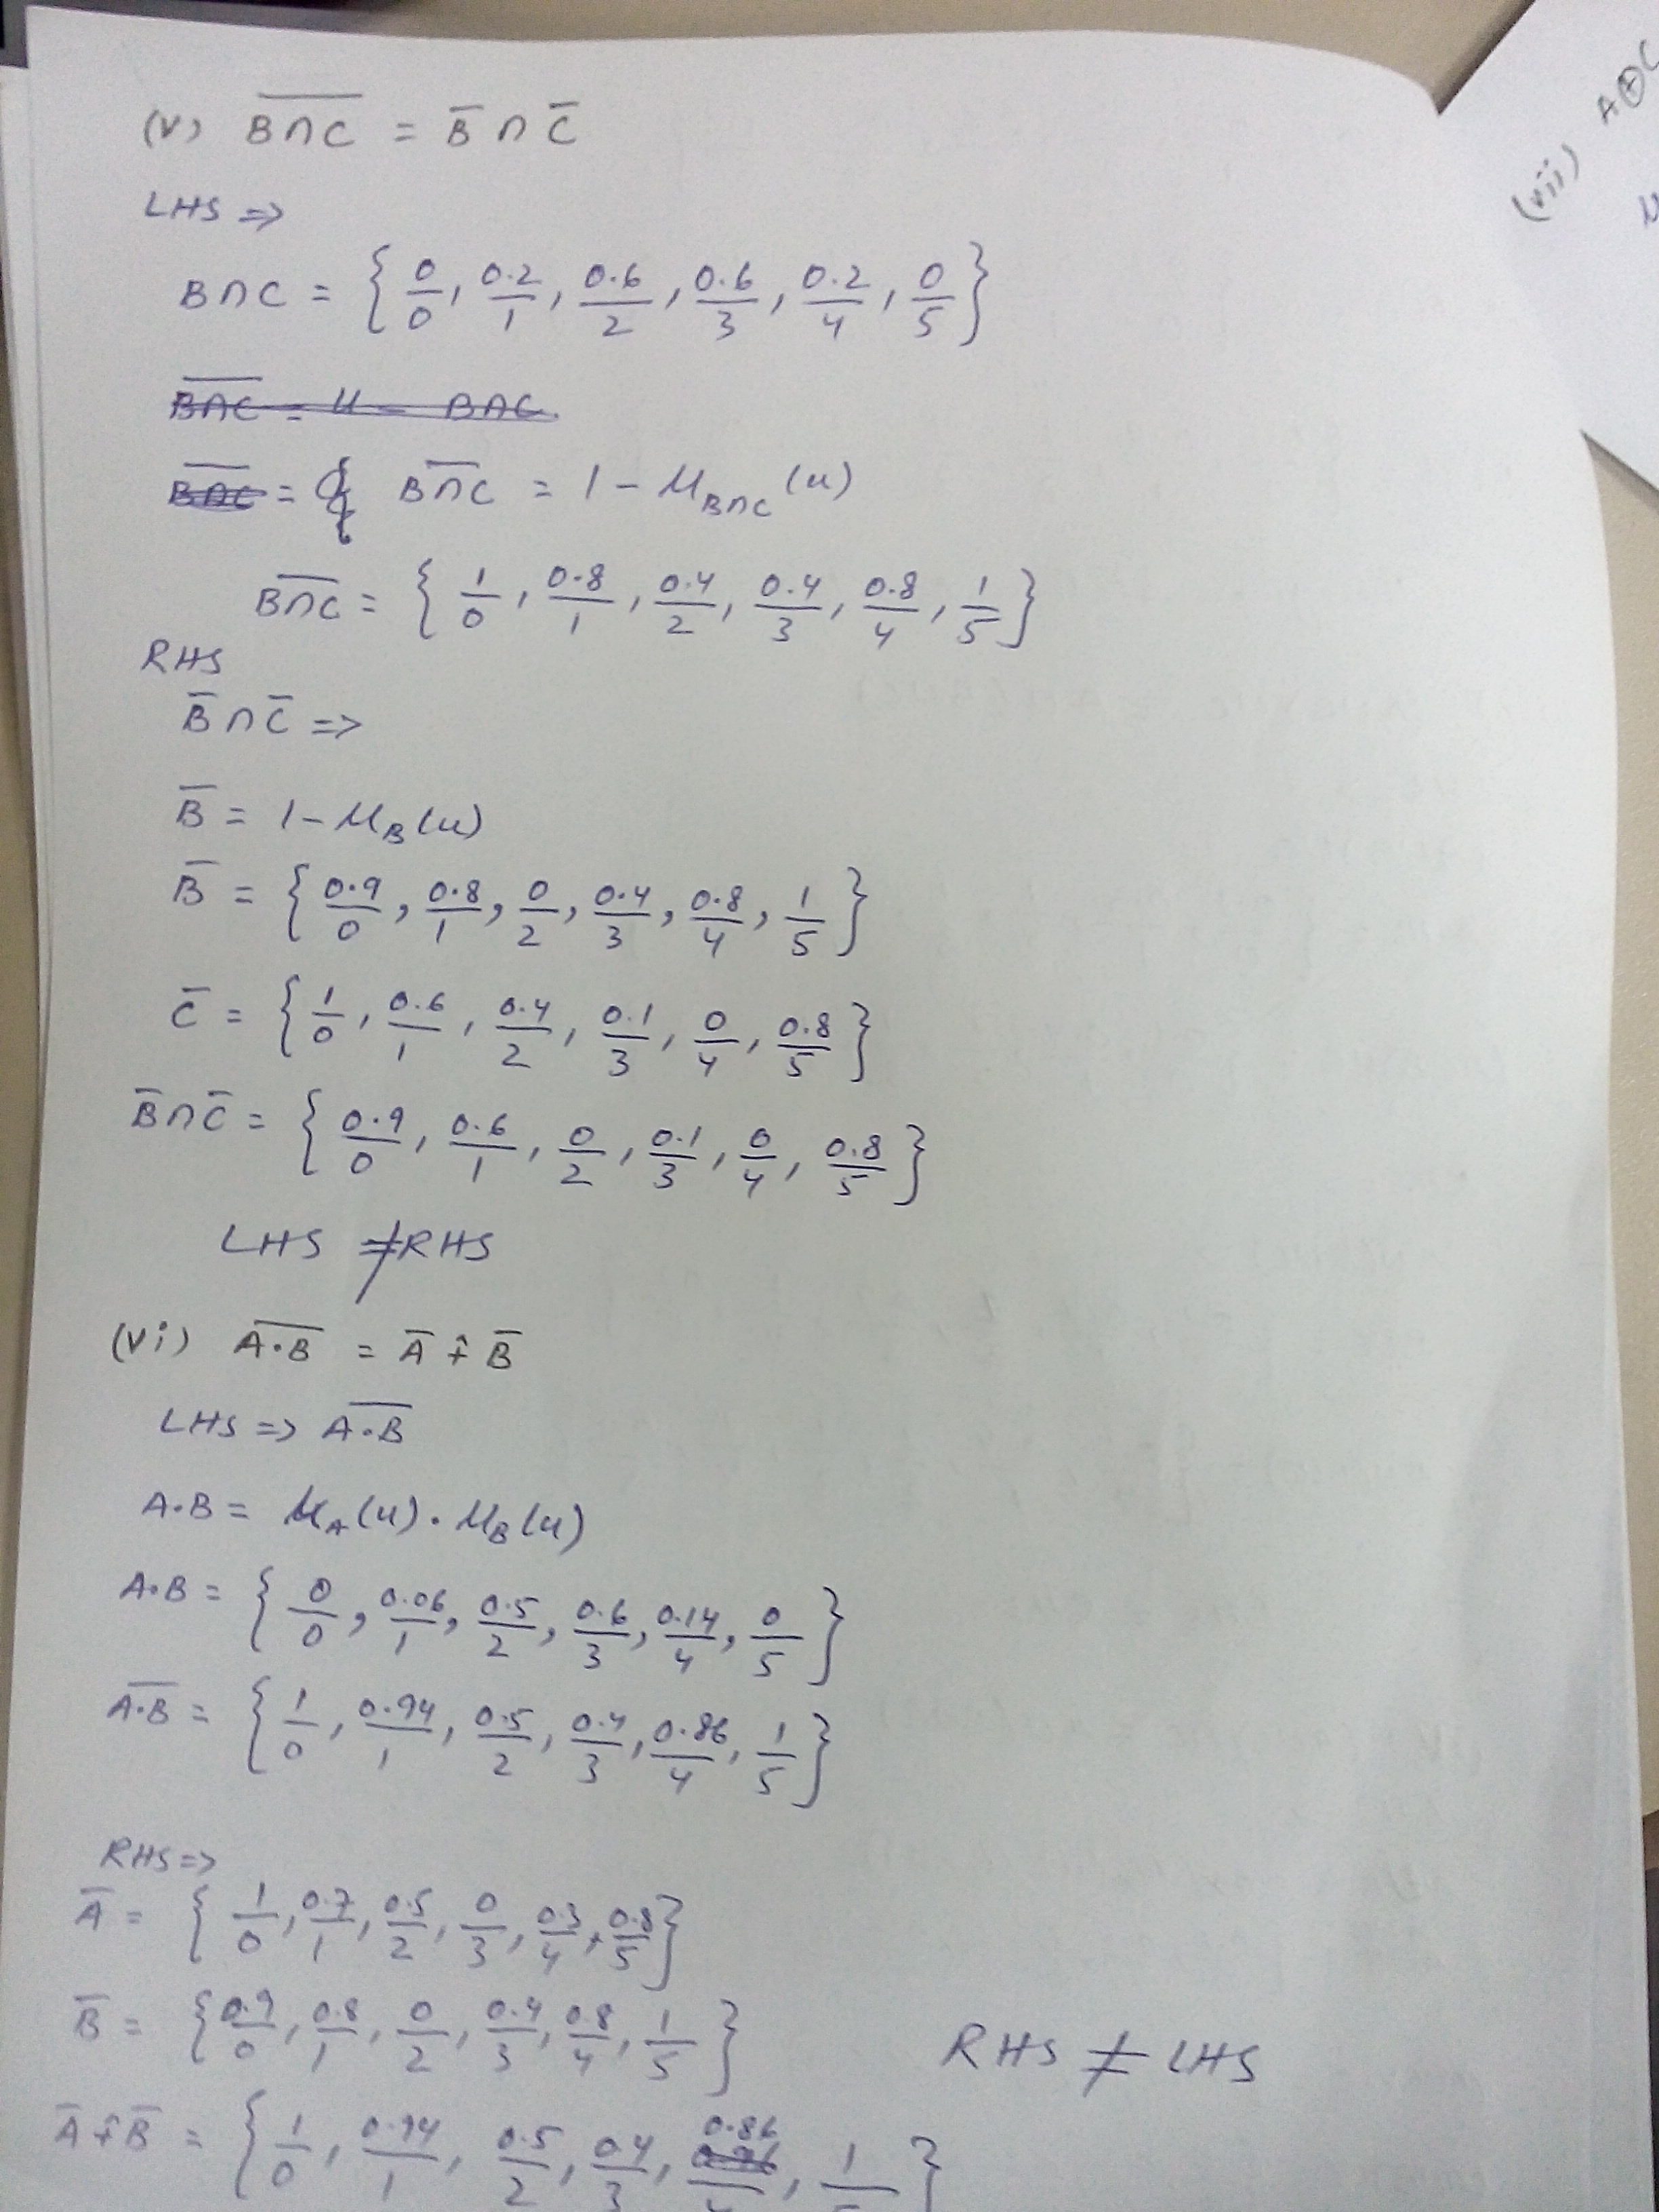 (v) \overline{B∩C} = \overline{B} ∩ \overline{C}
LHS ⇒
B∩C = { 0/0, 0.2/1, 0.6/2, 0.6/3, 0.2/4, 0/5 }
\overline{B∩C} = U - B∩C
\overline{B∩C} = \overline{B∩C} = 1 - μ_{B∩C}(u)
\overline{B∩C} = { 1/0, 0.8/1, 0.4/2, 0.4/3, 0.8/4, 1/5 }
RHS
\overline{B} ∩ \overline{C} ⇒
\overline{B} = 1 - μ_B(u)
\overline{B} = { 0.9/0, 0.8/1, 0/2, 0.4/3, 0.8/4, 1/5 }
\overline{C} = { 1/0, 0.6/1, 0.4/2, 0.1/3, 0/4, 0.8/5 }
\overline{B} ∩ \overline{C} = { 0.9/0, 0.6/1, 0/2, 0.1/3, 0/4, 0.8/5 }
LHS ≠ RHS
(vi) \overline{A·B} = \overline{A} +̂ \overline{B}
LHS ⇒ \overline{A·B}
A·B = μ_A(u) · μ_B(u)
A·B = { 0/0, 0.06/1, 0.5/2, 0.6/3, 0.14/4, 0/5 }
\overline{A·B} = { 1/0, 0.94/1, 0.5/2, 0.4/3, 0.86/4, 1/5 }
RHS ⇒
\overline{A} = { 1/0, 0.7/1, 0.5/2, 0/3, 0.3/4, 0.8/5 }
\overline{B} = { 0.9/0, 0.8/1, 0/2, 0.4/3, 0.8/4, 1/5 }
RHS ≠ LHS
\overline{A} +̂ \overline{B} = { 1/0, 0.94/1, 0.5/2, 0.4/3, 0.86/4, 1/5 }
(vii) A⊕C